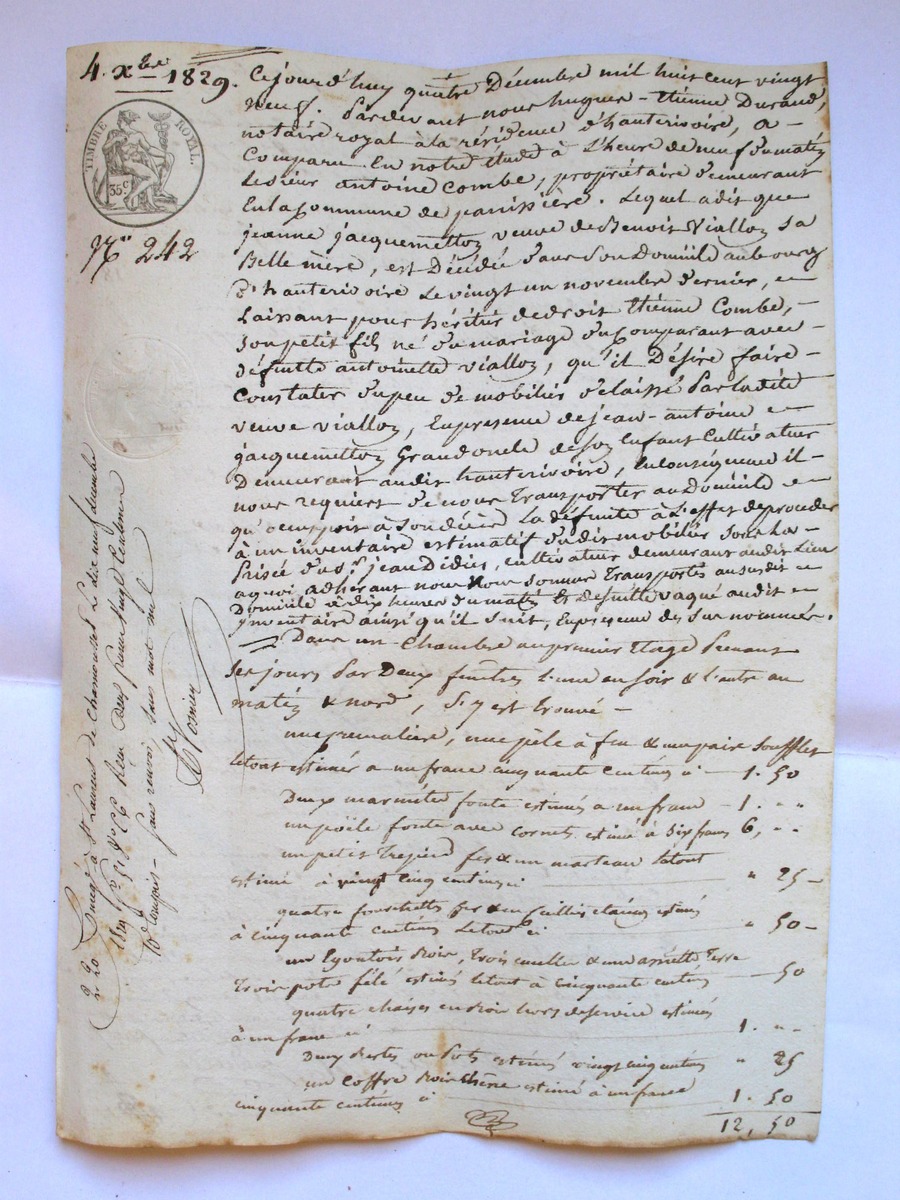 4. Xbre 1829.
TIMBRE ROYAL.
35c
No 242
Ce jourd'huy quatre Décembre mil huit cent vingt
neuf. Pardevant nous hugues-Etienne Durand,
notaire royal à la résidence d'hauterivoire, a
Comparu En notre étude à L'heure de neuf du matin
Le sieur antoine Combe, propriétaire demeurant
En la Commune de panissière. Lequel a dit que
jeanne jacquemetton veuve de Benoit Viallon sa
Belle mère, est Décédée dans Son Domicile au bourg
d'hauterivoire Le vingt un novembre dernier, en
Laissant pour héritier de droit Etienne Combe,
Son petit fils né du mariage du Comparant avec
défunte antoinette viallon, qu'il Désire faire
Constater du peu de mobilier délaissé Par la dite
veuve viallon, En presence de jean-antoine
jacquemetton Grand oncle de son Enfant Cultivateur
Demeurant au dit hauterivoire, En Conséquence il
nous requiert de nous Transporter au Domicile
qu'occupoit à Son décès La défunte à L'effet de proceder
à un inventaire estimatif du dit mobilier Sous La
Prisée du sr. jean Didier, cultivateur demeurant au dit Lieu
a quoi adhérant nous Nous Sommes Transportés au susdit
Domicile à dix heures du matin Et de suite vaqué au dit
inventaire ainsi qu'il suit, En presence des Sus nommés.
Dans un Chambre au premier Etage Prenant
Ses jours Par Deux fenêtres L'une au soir & L'autre au
matin & nord, S'y est trouvé
une cremaliere, une pèle à feu & un paire Soufflet
le tout estimés a un franc cinquante centimes ci 1. 50
Deux marmites fonte estimés a un franc 1. " "
un poële fonte avec cornets estimé à Six francs 6, " "
un petit trepied fer & un marteau Le tout
estimé à vingt cinq centimes ci " 25
quatre fourchettes fer & un cuillier étaim estimés
à cinquante centimes Le tout ci " 50
un Egoutoir Bois, Trois cuillier & une assiette Terre
Trois pots félé estimés le tout à cinquante centimes 50
quatre chaises en Bois hors de service estimés
à un franc ci 1. " "
Deux estimés vingt cinq centimes " 25
un Coffre Bois chêne estimé à un franc
cinquante centimes ci 1. 50
12, 50
2 20
2 20
Enregé à St Laurent de Chamousset Le dix neuf décembre
1829 fo 51 Vo C6 Reçu deux francs vingt centimes
10e Compris - Sans renvoi, Sans mot nul